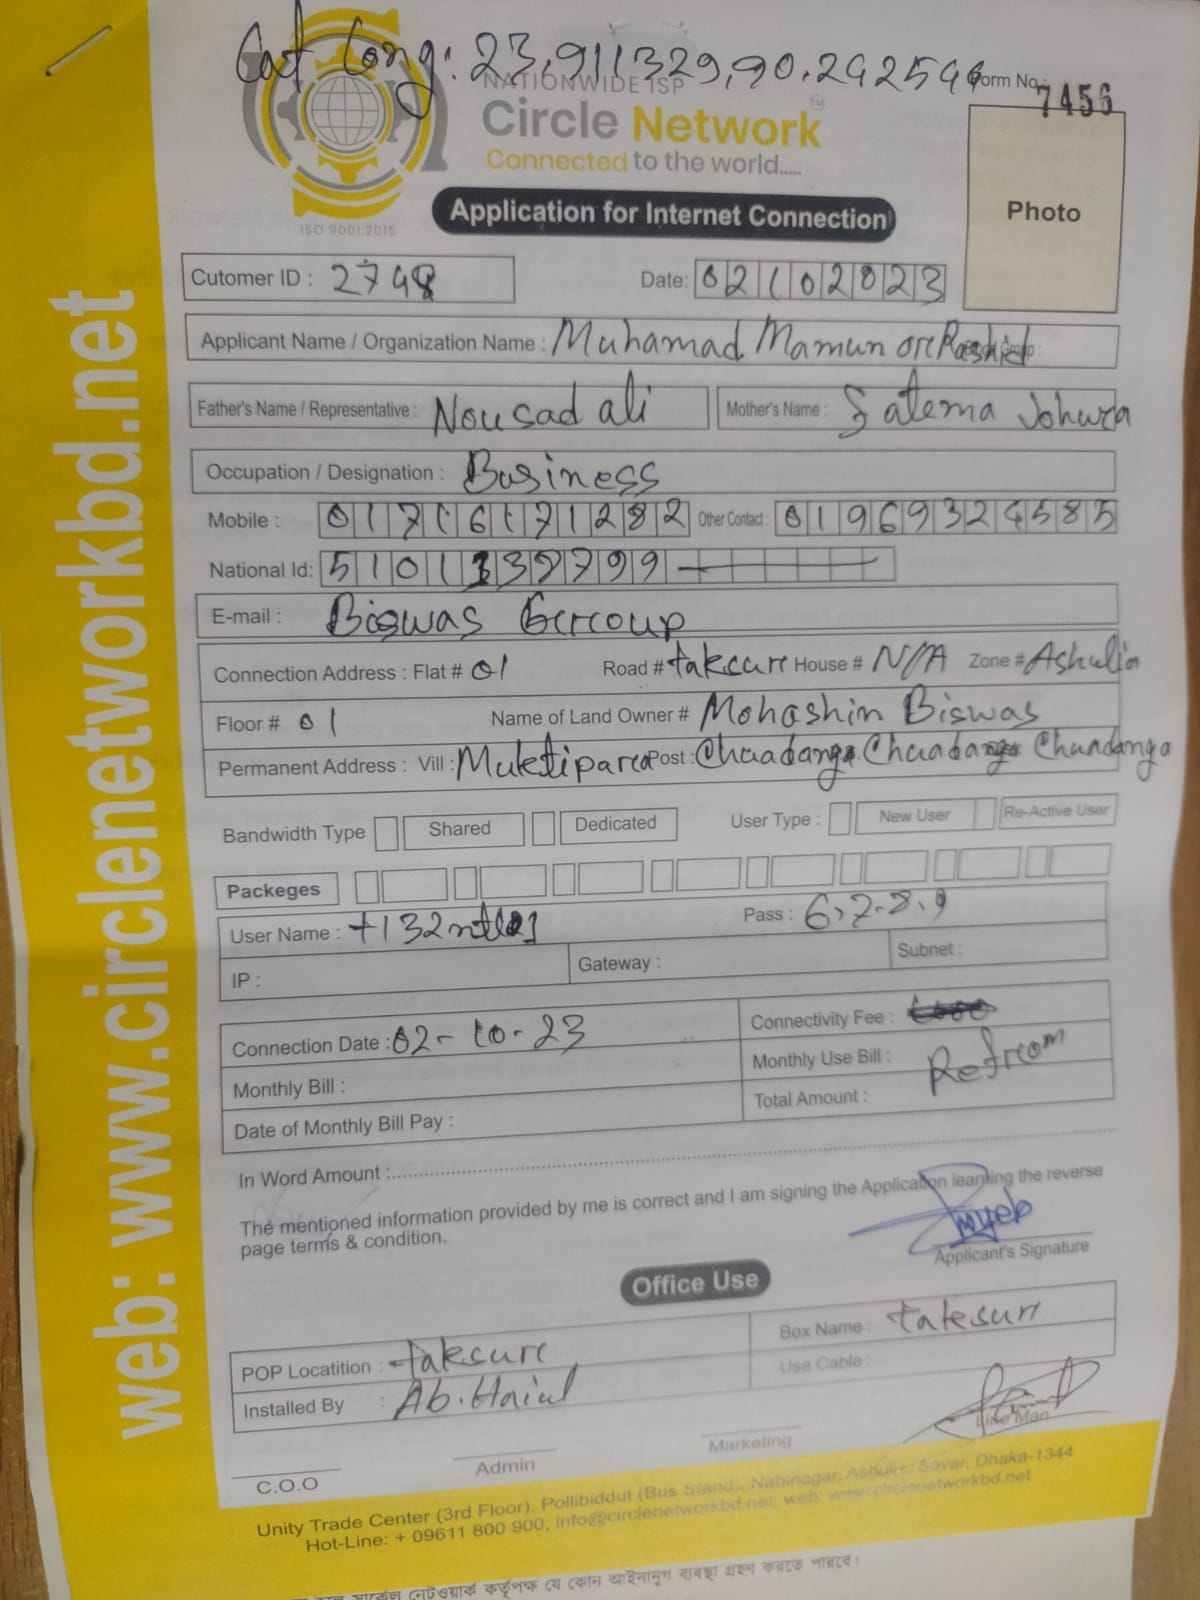 Cat Long: 23,911329,90.242596
NATIONWIDE ISP
Form No. 7456
Circle Network
TM
Connected to the world.....
ISO 9001:2015
Photo
Application for Internet Connection
Cutomer ID : 2748
Date: 02102023
Applicant Name / Organization Name : Muhamad Mamun or Rashid
Father's Name / Representative : Nousad ali
Mother's Name : Fatema Johura
Occupation / Designation : Business
Mobile : 01716171282
Other Contact : 01969324585
National Id: 5101
E-mail : Biswas Group
Connection Address : Flat # 01 Road # taksure House # N/A Zone # Ashulia
Floor # 01 Name of Land Owner # Mohashin Biswas
Permanent Address : Vill : Muktipara Post : Chuadanga Chuadanga Chuadanga
Bandwidth Type Shared Dedicated User Type : New User Re-Active User
Packeges
User Name : Pass : 6,7.8.9
IP : Gateway : Subnet :
Connection Date : 02-10-23 Connectivity Fee :
Monthly Bill : Monthly Use Bill :
Date of Monthly Bill Pay : Total Amount :
In Word Amount :
The mentioned information provided by me is correct and I am signing the Application learning the reverse
page terms & condition.
Applicant's Signature
Office Use
POP Locatition : taksure Box Name : taksure
Installed By : Ab. Use Cable :
C.O.O Admin Marketing Line Man
Unity Trade Center (3rd Floor), Pollibiddut (Bus Stand), Nabinagar, Ashulie, Savar, Dhaka-1344
Hot-Line: + 09611 800 900, info@circlenetworkbd.net, web: www.circlenetworkbd.net
web: www.circlenetworkbd.net
সার্কেল নেটওয়ার্ক কর্তৃপক্ষ যে কোন আইনানুগ ব্যবস্থা গ্রহণ করতে পারবে।